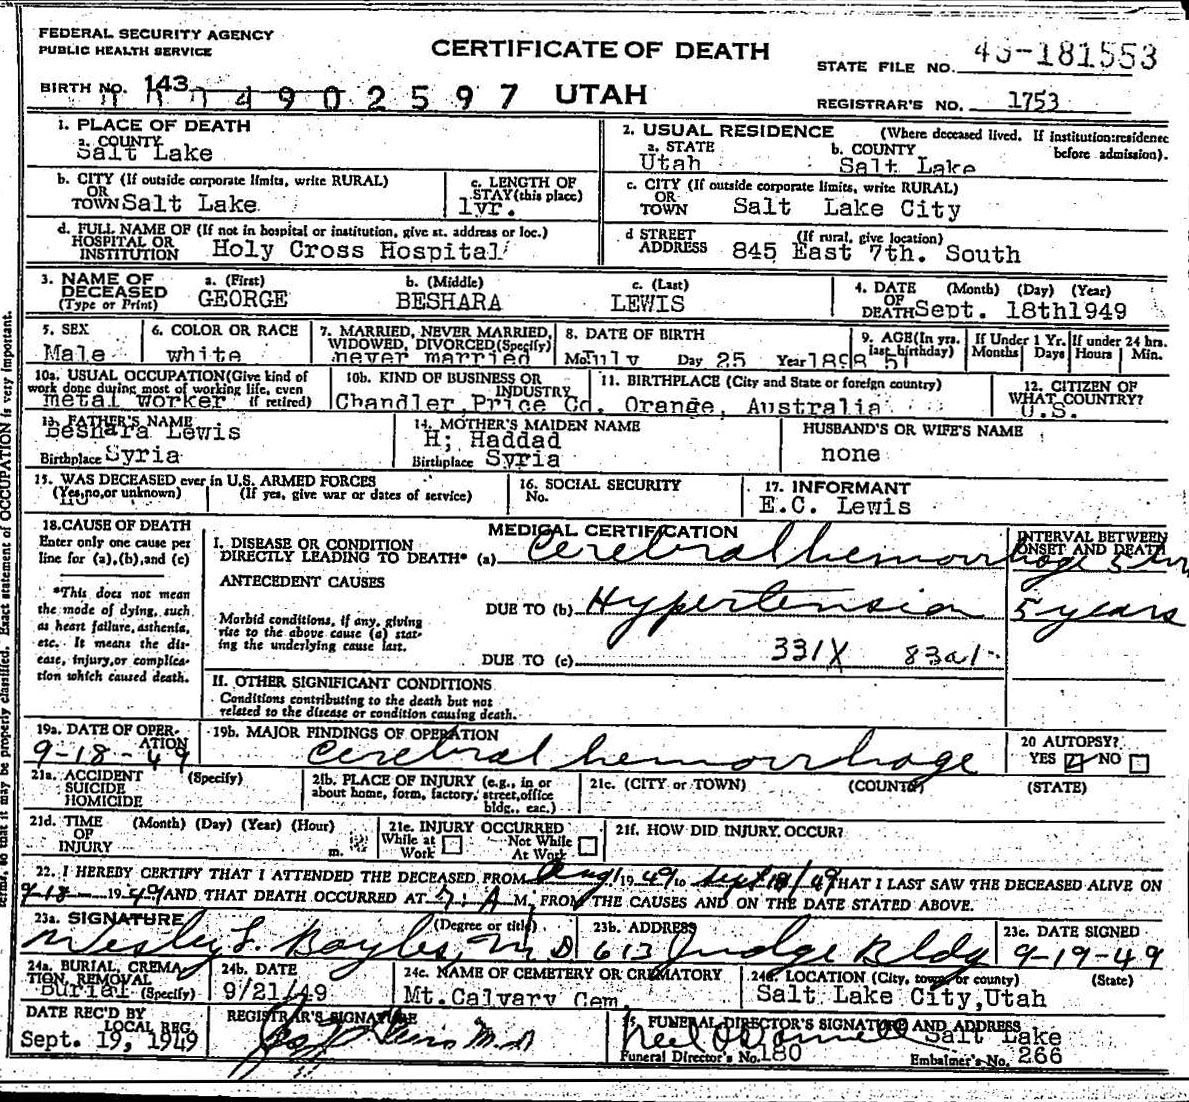 FEDERAL SECURITY AGENCY
PUBLIC HEALTH SERVICE
CERTIFICATE OF DEATH
STATE FILE NO. 181553
BIRTH NO. 143
4902597 UTAH
REGISTRAR'S NO. 1753
1. PLACE OF DEATH
a. COUNTY
Salt Lake
2. USUAL RESIDENCE (Where deceased lived. If institution: residence before admission).
a. STATE b. COUNTY
Utah Salt Lake
b. CITY (If outside corporate limits, write RURAL)
OR
TOWN Salt Lake
c. LENGTH OF
STAY (this place)
1yr.
c. CITY (If outside corporate limits, write RURAL)
OR
TOWN Salt Lake City
d. FULL NAME OF (If not in hospital or institution, give st. address or loc.)
HOSPITAL OR
INSTITUTION Holy Cross Hospital
d STREET (If rural, give location)
ADDRESS 845 East 7th. South
3. NAME OF
DECEASED
(Type or Print)
a. (First) b. (Middle) c. (Last)
GEORGE BESHARA LEWIS
4. DATE (Month) (Day) (Year)
OF
DEATH Sept. 18th1949
5. SEX
Male
6. COLOR OR RACE
white
7. MARRIED, NEVER MARRIED,
WIDOWED, DIVORCED (Specify)
never married
8. DATE OF BIRTH
Mo July Day 25 Year 1898
9. AGE (In yrs.
last birthday)
51
If Under 1 Yr.
Months Days
If under 24 hrs.
Hours Min.
10a. USUAL OCCUPATION (Give kind of
work done during most of working life, even
if retired)
metal worker
10b. KIND OF BUSINESS OR
INDUSTRY
Chandler Price Co.
11. BIRTHPLACE (City and State or foreign country)
Orange, Australia
12. CITIZEN OF
WHAT COUNTRY?
U.S.
13. FATHER'S NAME
Beshara Lewis
Birthplace Syria
14. MOTHER'S MAIDEN NAME
H; Haddad
Birthplace Syria
HUSBAND'S OR WIFE'S NAME
none
15. WAS DECEASED ever in U.S. ARMED FORCES
(Yes, no, or unknown) (If yes, give war or dates of service)
no
16. SOCIAL SECURITY
No.
17. INFORMANT
E.C. Lewis
18. CAUSE OF DEATH
Enter only one cause per
line for (a), (b), and (c)
*This does not mean
the mode of dying, such
as heart failure, asthenia,
etc. It means the dis-
ease, injury, or complica-
tion which caused death.
MEDICAL CERTIFICATION
I. DISEASE OR CONDITION
DIRECTLY LEADING TO DEATH* (a) Cerebral hemorrhage
INTERVAL BETWEEN
ONSET AND DEATH
5 hrs
ANTECEDENT CAUSES
DUE TO (b) Hypertension 5 years
Morbid conditions, if any, giving
rise to the above cause (a) stat-
ing the underlying cause last.
DUE TO (c) 331X 83a1
II. OTHER SIGNIFICANT CONDITIONS
Conditions contributing to the death but not
related to the disease or condition causing death.
19a. DATE OF OPER-
ATION
9-18-49
19b. MAJOR FINDINGS OF OPERATION
Cerebral hemorrhage
20 AUTOPSY?
YES NO
21a. ACCIDENT (Specify)
SUICIDE
HOMICIDE
21b. PLACE OF INJURY (e.g., in or
about home, form, factory, street, office
bldg., eac.)
21c. (CITY or TOWN) (COUNTY) (STATE)
21d. TIME (Month) (Day) (Year) (Hour)
OF
INJURY m.
21e. INJURY OCCURRED
While at Not While
Work At Work
21f. HOW DID INJURY OCCUR?
22. I HEREBY CERTIFY THAT I ATTENDED THE DECEASED FROM Aug 1 1949 to Sept 18/49 THAT I LAST SAW THE DECEASED ALIVE ON
9-18- 1949 AND THAT DEATH OCCURRED AT 7: A M, FROM THE CAUSES AND ON THE DATE STATED ABOVE.
23a. SIGNATURE (Degree or title)
Wesley L. Bayles, M D
23b. ADDRESS
613 Judge Bldg
23c. DATE SIGNED
9-19-49
24a. BURIAL, CREMA-
TION, REMOVAL
Burial (Specify)
24b. DATE
9/21/49
24c. NAME OF CEMETERY OR CREMATORY
Mt. Calvary Cem.
24d. LOCATION (City, town, or county) (State)
Salt Lake City, Utah
DATE REC'D BY
LOCAL REG.
Sept. 19, 1949
REGISTRAR'S SIGNATURE
M.D.
25. FUNERAL DIRECTOR'S SIGNATURE AND ADDRESS
Neel O'Donnell Salt Lake
Funeral Director's No. 180 Embalmer's No. 266
terms, so that it may be properly classified. Exact statement of OCCUPATION is very important.